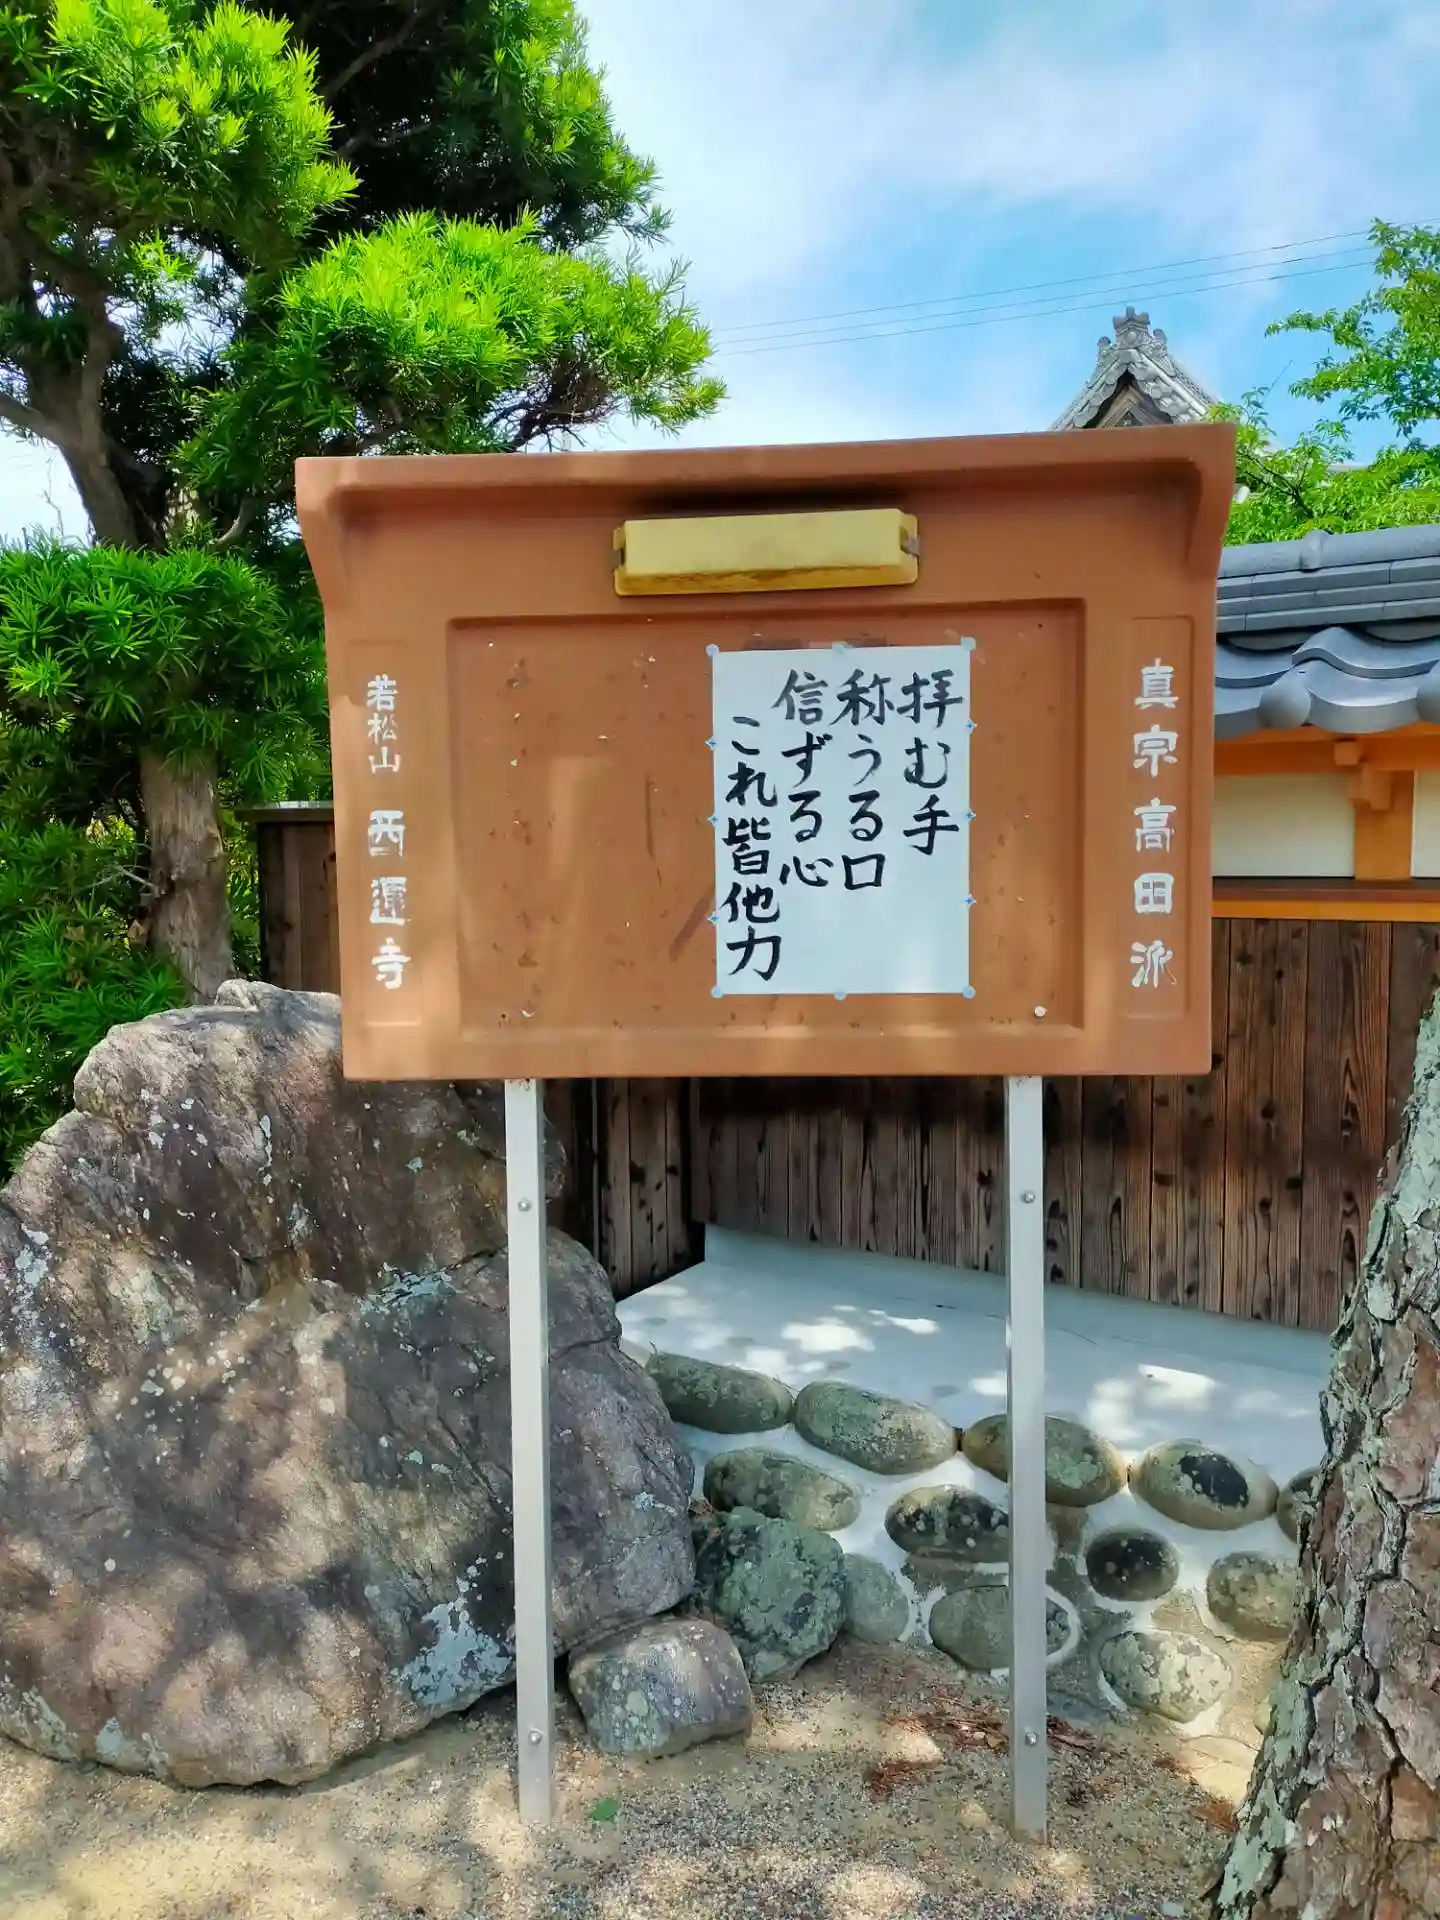 真宗高田派
拝む手
称うる口
信ずる心
これ皆他力
若松山 西運寺